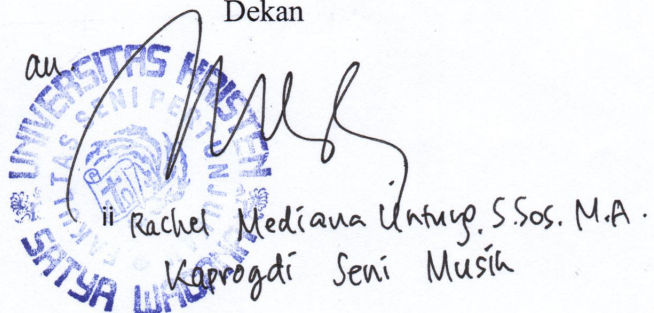 Dekan
an
UNIVERSITAS KRISTEN
SATYA WACANA
FAKULTAS SENI PERTUNJUKAN
ii
Rachel Mediana Untung, S.Sos. M.A.
Kaprogdi Seni Musik